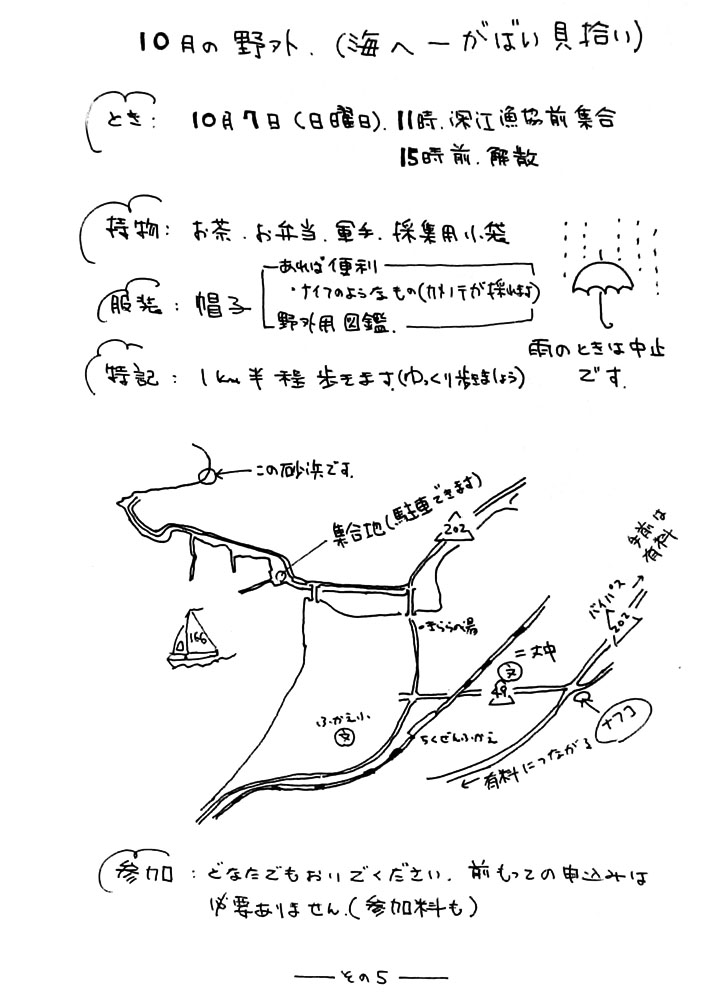 10月の野外.(海へ－がばい貝拾い)
とき: 10月7日(日曜日).11時.深江漁協前集合
15時前.解散
持物: お茶.お弁当.軍手.採集用小袋
服装: 帽子
あれば便利
・ナイフのようなもの(カメノテが採れます)
野外用図鑑.
雨のときは中止
です.
特記: 1km半程歩きます.(ゆっくり歩きましょう)
この砂浜です.
集合地(駐車できます)
202
手前は
有料
バイパス
202
きららの湯
166
文
=丈中
49
ナフコ
ふかえ小
文
ちくぜんふかえ
←有料につながる
参加: どなたでもおいでください.前もっての申込みは
必要ありません.(参加料も)
その5